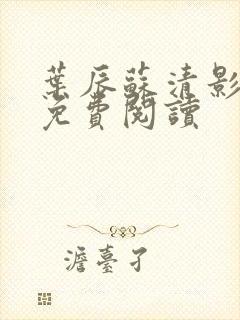 葉辰蘇清影
免費閱讀
澹臺孑